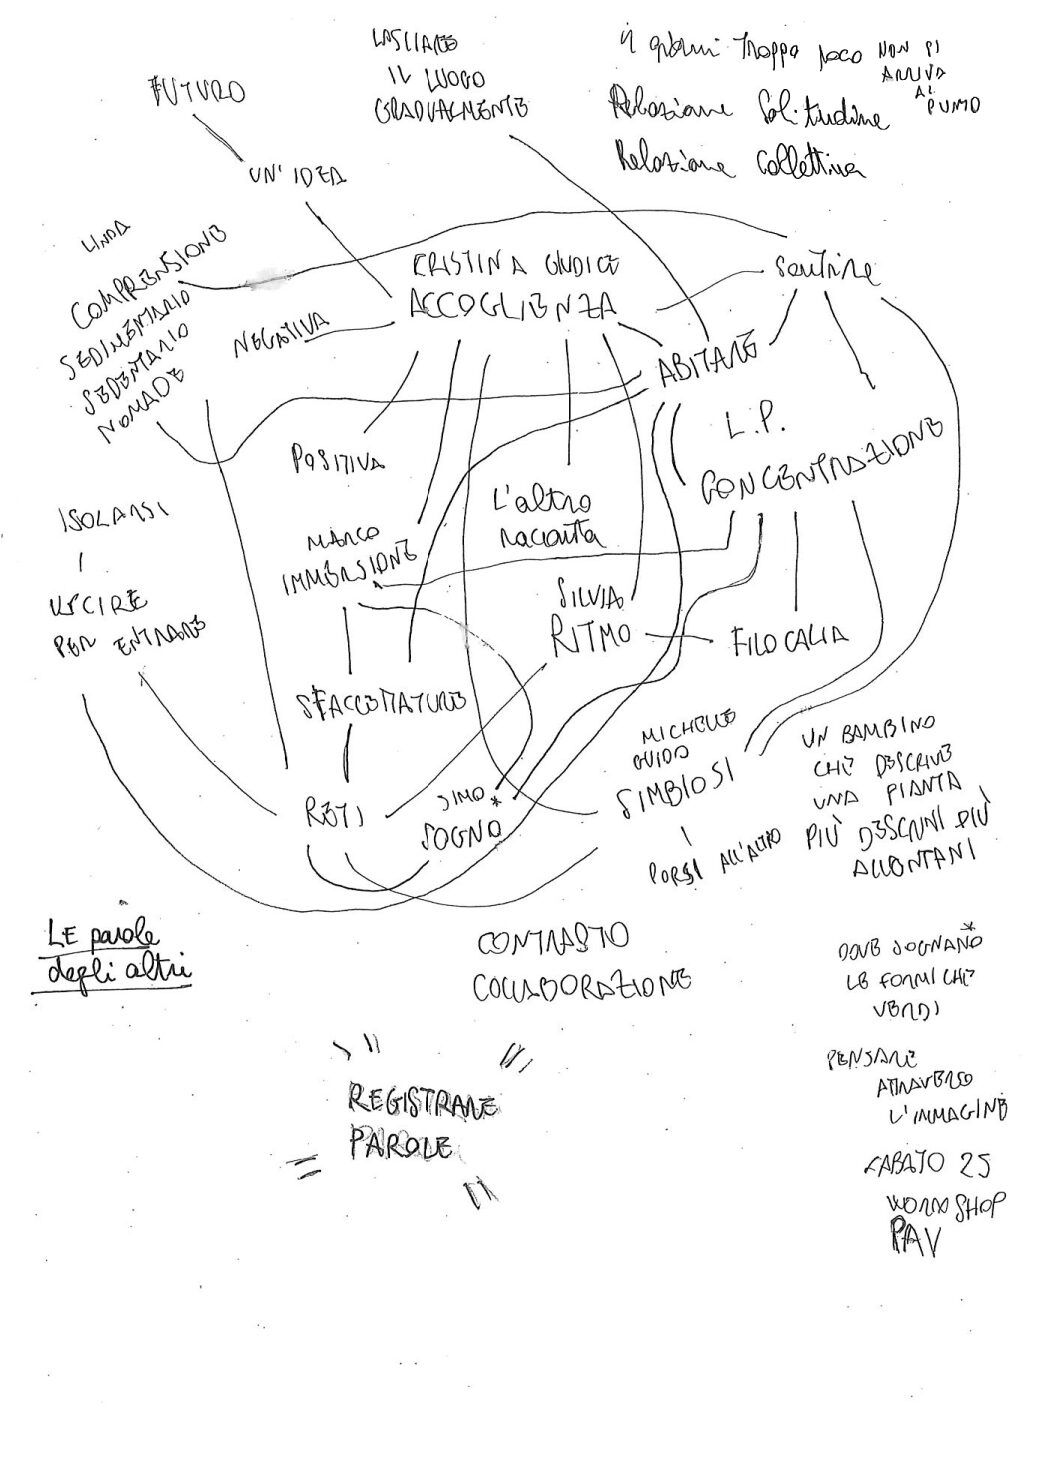 LASCIARE
IL LUOGO
GRADUALMENTE
4 giorni troppo poco NON SI
ARRIVA
AL
PUNTO
Relazione Solitudine
Relazione Collettiva
FUTURO
UN'IDEA
LINDA
COMPRENSIONE
SEDIMENTARIO
SEDENTARIO
NOMADE
NEGATIVA
CRISTINA GIUDICE
ACCOGLIENZA
Sentire
ABITARE
L.P.
CONCENTRAZIONE
POSITIVA
ISOLARSI
USCIRE
PER ENTRARE
MARCO
IMMERSIONE
L'altro
racconta
SILVIA
RITMO
FILOCALIA
SFACCETTATURE
RETI
SIMO *
SOGNO
MICHELE
GUIDO
SIMBIOSI
PORSI ALL'ALTRO
UN BAMBINO
CHE DESCRIVE
UNA PIANTA
PIÙ DESCRIVI PIÙ
ALLONTANI
LE parole
degli altri
CONTRASTO
COLLABORAZIONE
*
DOVE SOGNANO
LE FORMICHE
VERDI
PENSARE
ATTRAVERSO
L'IMMAGINE
REGISTRARE
PAROLE
SABATO 25
WORKSHOP
PAV